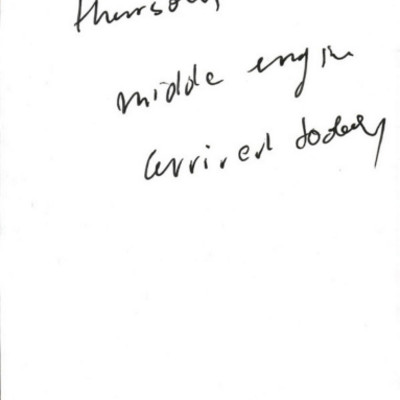 thursday
midde engin
arrived today